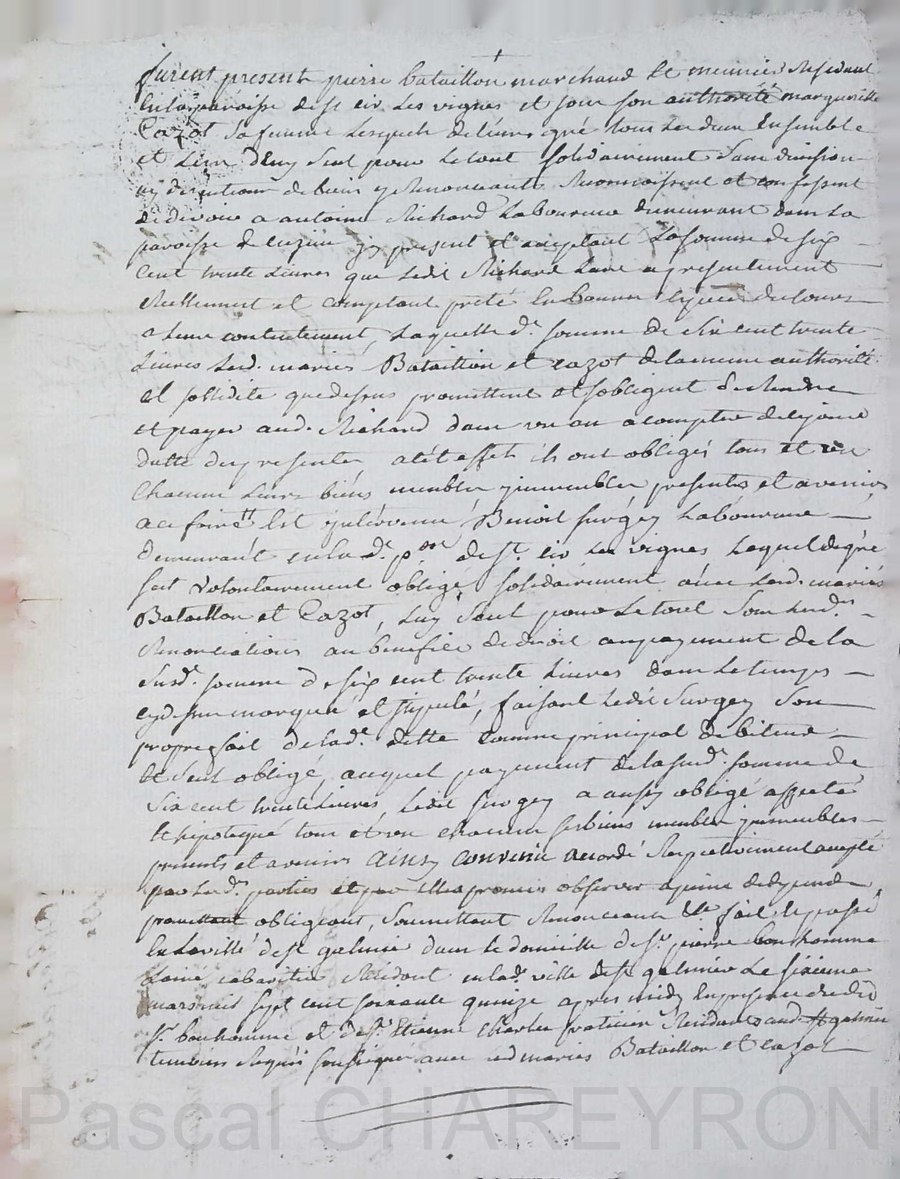 furent present pierre bataillon marchand et meunier Residant
en la paroisse de st cir les vignes et sous son authorité margueritte
Cazot sa femme lesquels de leurs gré tous les deux Ensemble
et l'un d'eux seul pour le tout solidairement sans division
ny discution de biens y Renonceants Reconnoissent et confessent
devoir a antoine Richard Laboureur demeurant dans La
paroisse de cuzieu y present et acceptant La somme de six
cent trente Livres que Ledit Richard Leur a presentement
Reellement et comptant preté En bonnes Especes du cours
a Leur contentement, Laquelle de. somme de six cent trente
Livres Lesd. mariés Bataillon et cazot de la meme authorité
et sollidite que dessus promettent et s'obligent de Rendre
et payer aud. Richard dans un an a compter de ce jour
datte des presentes a cet effet ils ont obligés tous et un
Chacuns Leurs biens meubles immeubles presents et avenirs
a ce faire Est intervenu Benoit surgey Laboureur
demeurant en lade. psse. de st. cir Les vignes Lequel de gré
s'est volontairement obligé solidairement avec Lesd. mariés
Bataillon et Cazot, Luy seul pour Le tout sous Lesdes.
Renonciations au benefice de droit au payement de la
susde. somme de six cent trente Livres dans Le temps
cydessus marqué et stipulé, faisant Ledit Surgey Son
propre fait de lade. dette comme principal debiteur
et seul obligé, auquel payement de la susde. somme de
Six cent trente Livres, Ledit surgey a aussy obligé affecté
et hipotequé tous et un chacuns ses biens meubles immeubles
presents et avenirs ainsy convenu accordé Respectivement accepté
par Lesdes. parties et par Elles promis observer a peine de depends
promettant obligeant, Soumettant Renonceant &c fait et passé
En La ville de st galmier dans le domicille de sr. pierre bonhomme
Lainé cabaretier Residant en lade. ville de st galmier Le sixieme
mars mil sept cent soixante quinze apres midy En presence dudit
sr. bonhomme et de sr. Etienne Charles praticien Residants aud. St galmier
temoins Requis soussignés avec led mariés Bataillon et cazot
Pascal CHAREYRON